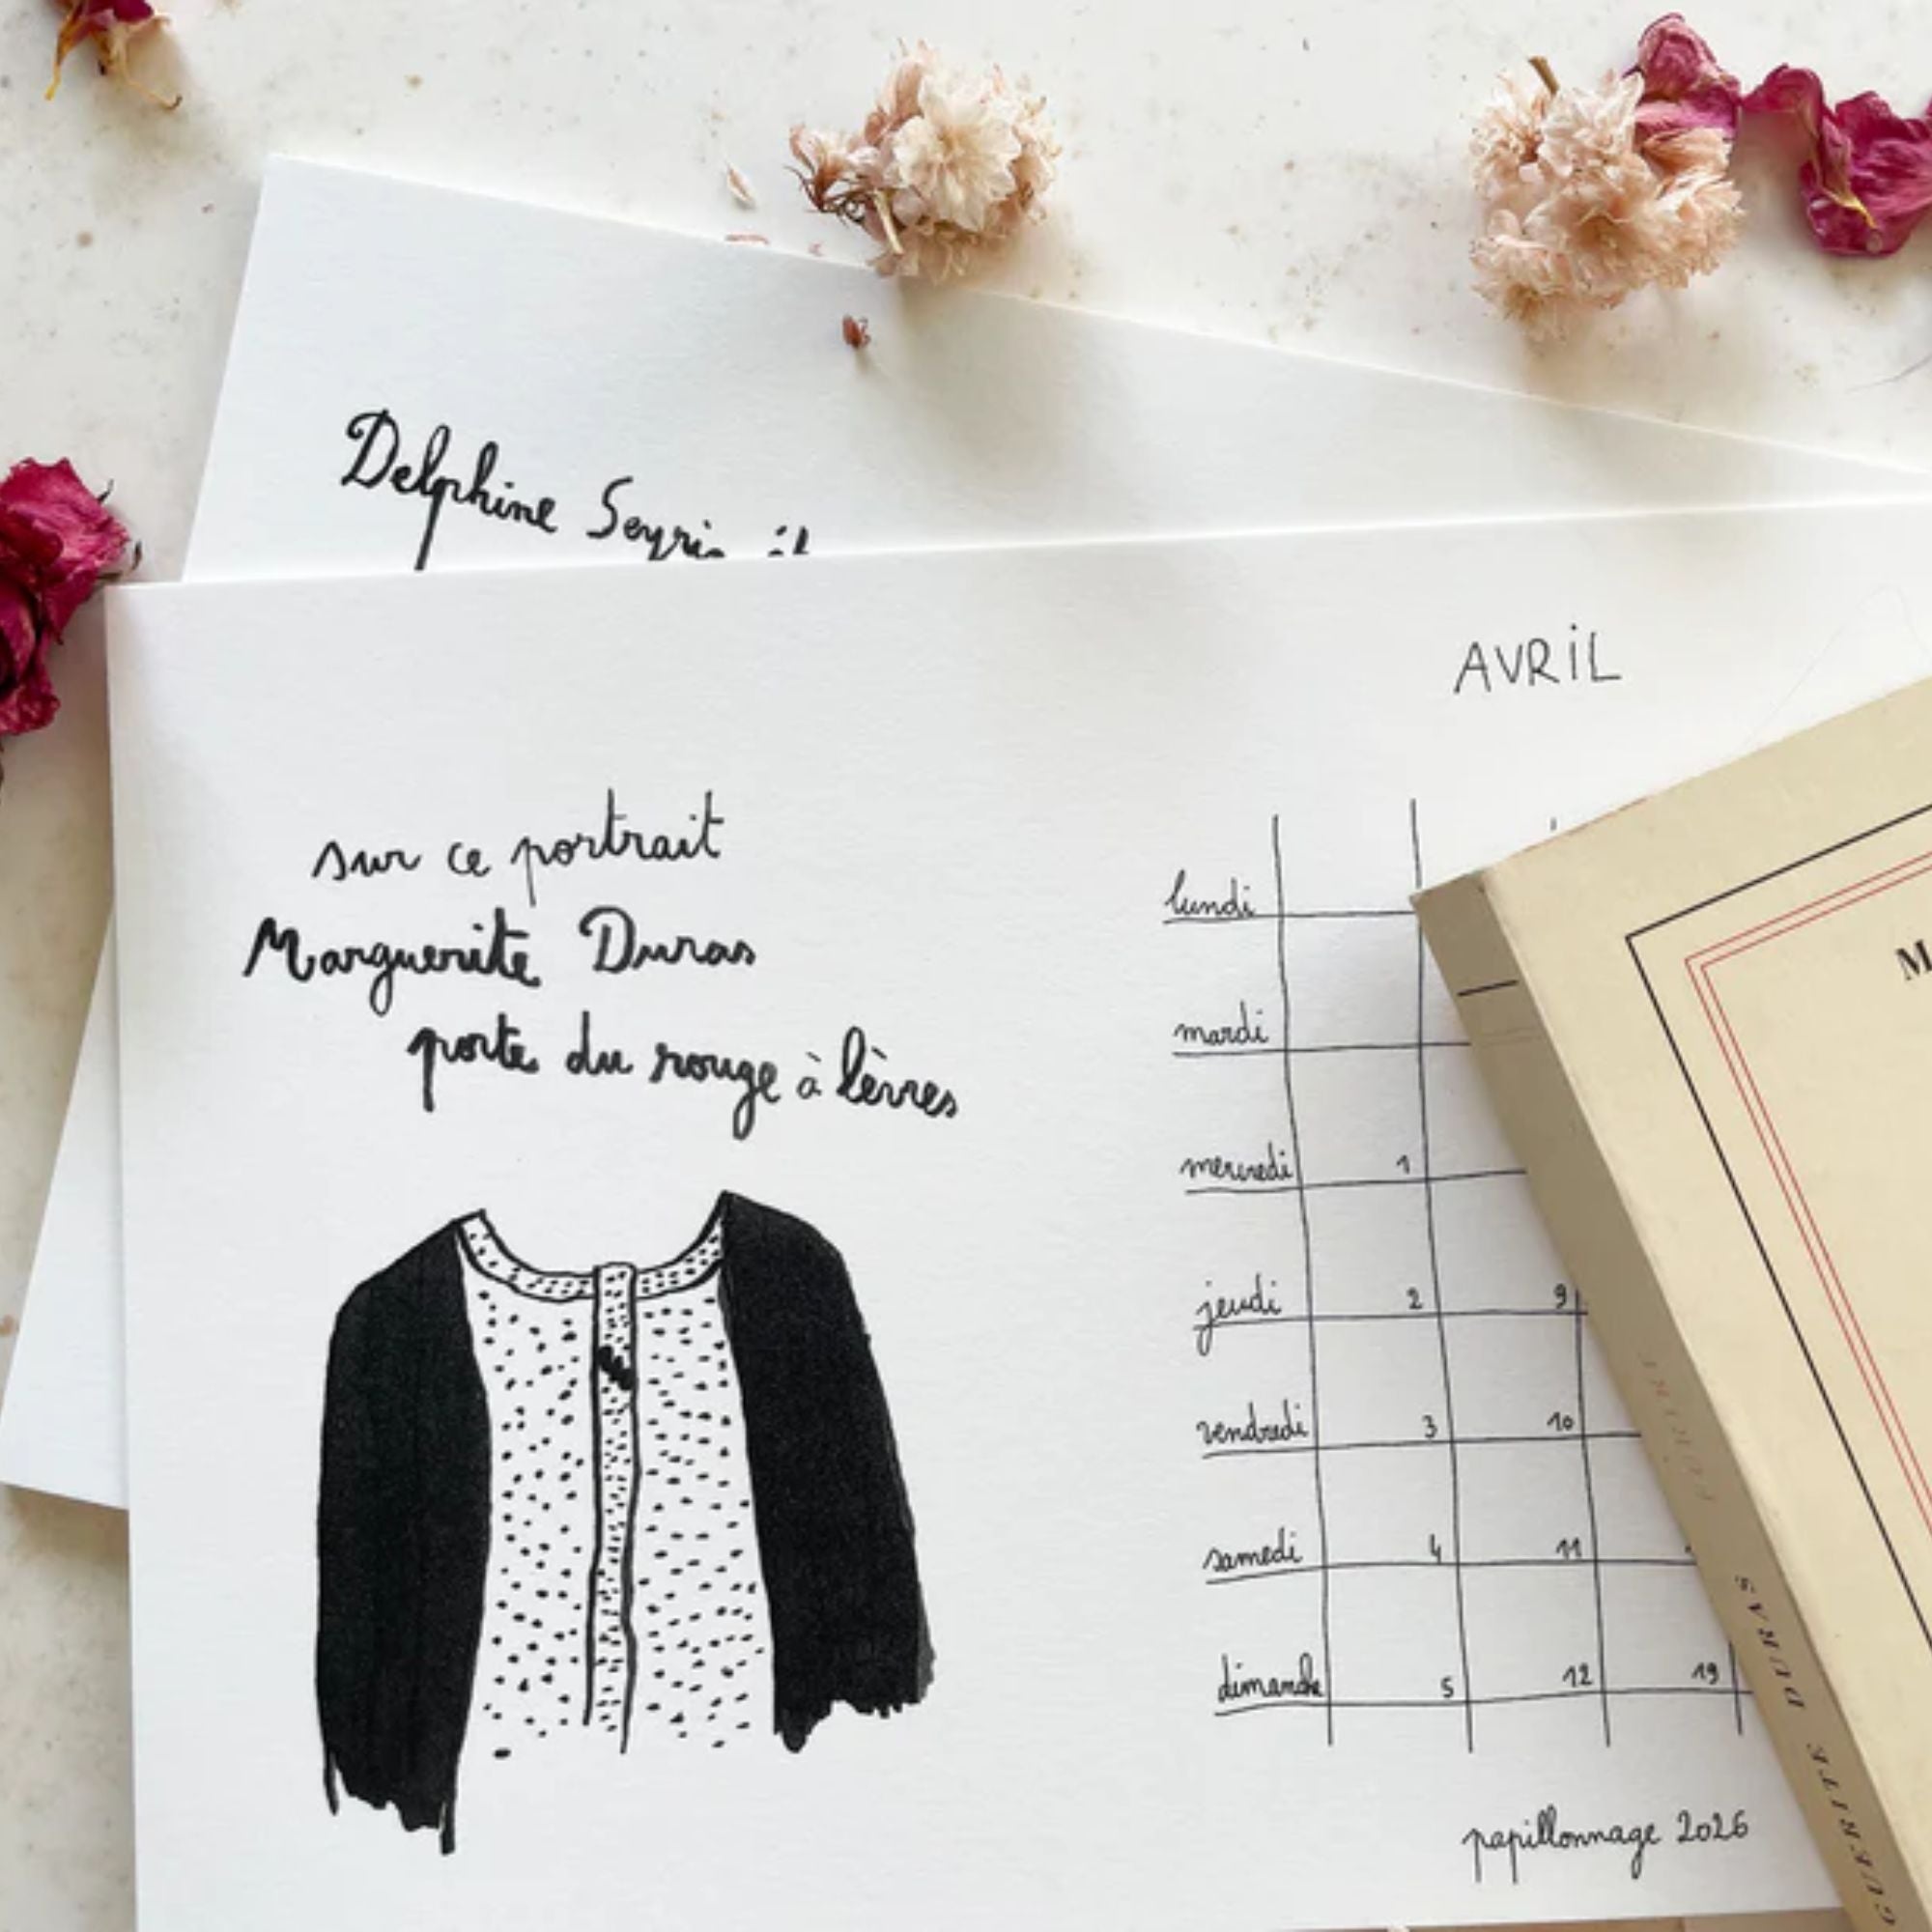 Delphine Seyrig
sur ce portrait
Marguerite Duras
porte du rouge à lèvres
AVRiL
lundi
mardi
mercredi 1
jeudi 2 9
vendredi 3 10
samedi 4 11
dimanche 5 12 19
papillonnage 2026
M
MARGUERITE DURAS